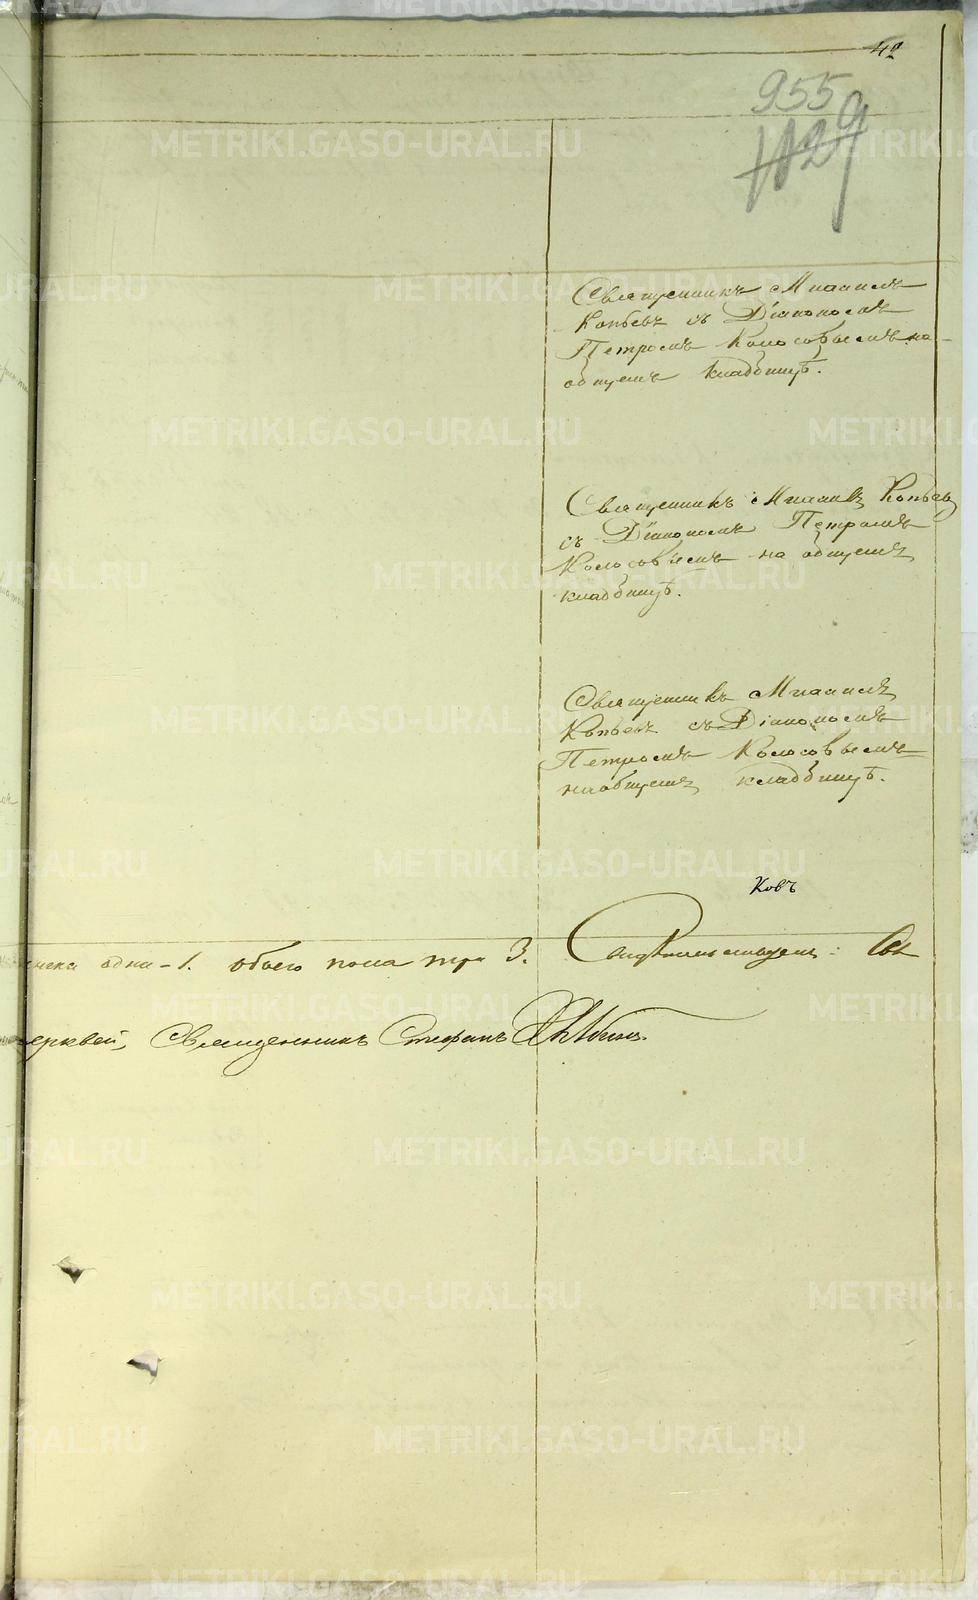 42
955
1129
Священникъ Михаилъ
Копьевъ съ Діакономъ
Петромъ Колосовымъ на
общемъ кладбищѣ.
Священникъ Михаилъ Копьевъ
съ Діакономъ Петромъ
Колосовымъ на общемъ
кладбищѣ.
Священникъ Михаилъ
Копьевъ съ Діакономъ
Петромъ Колосовымъ
на общемъ кладбищѣ.
Ковъ
одна - 1. обоего пола три 3.
церквей, Священникъ Стефанъ
METRIKI.GASO-URAL.RU